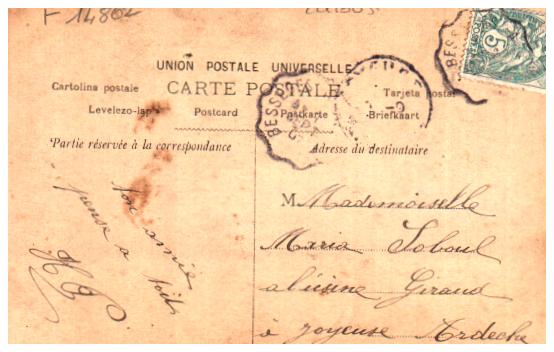 F 14802
UNION POSTALE UNIVERSELLE
CARTE POSTALE
Cartolina postale
Tarjeta postal
Levelezo-lap
Postcard
Postkarte
Briefkaart
Partie réservée à la correspondance
Adresse du destinataire
BESS
BESS
5
Ton amie
pense a toi
M Mademoiselle
Maria Laboul
a l'usine Giraud
à Joyeuse Ardeche